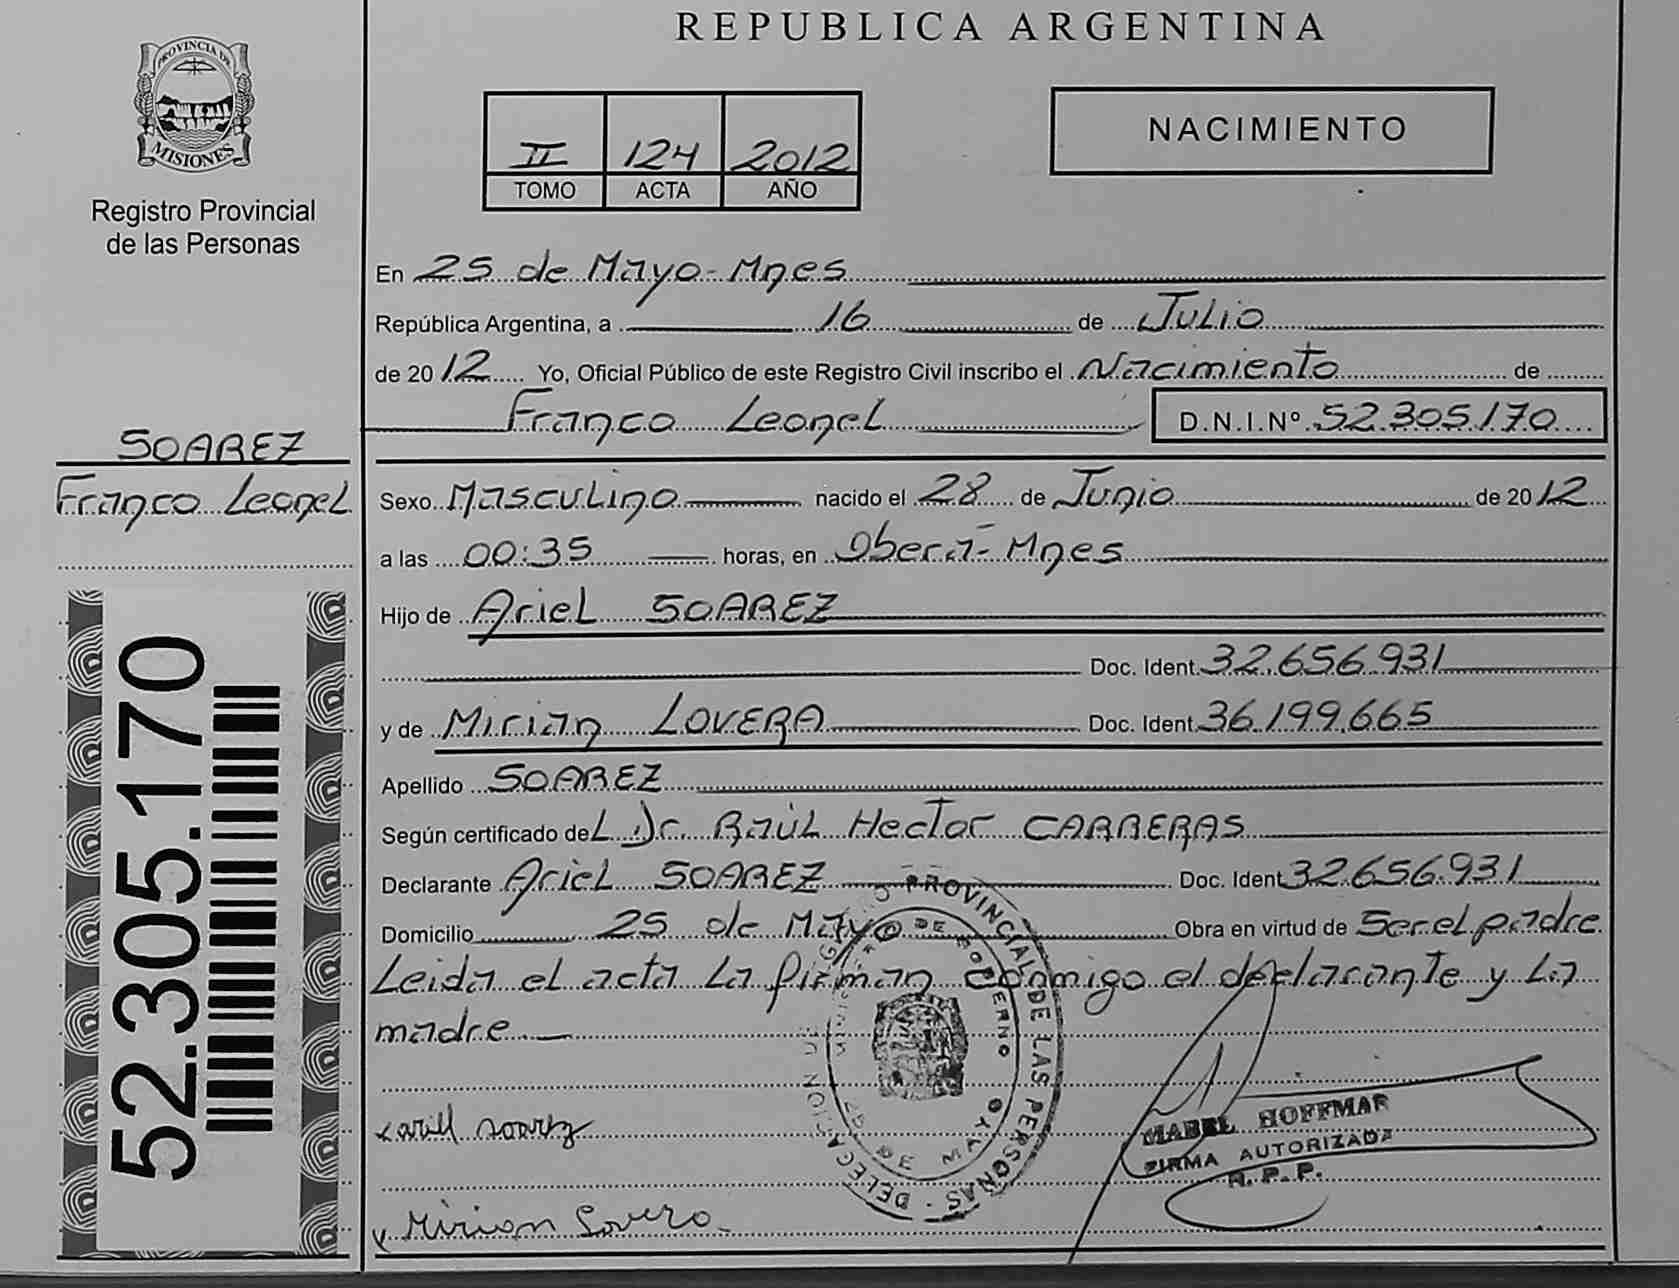 REPUBLICA ARGENTINA
PROVINCIA DE
MISIONES
Registro Provincial
de las Personas
II 124 2012
TOMO ACTA AÑO
NACIMIENTO
En 25 de Mayo-Mnes
República Argentina, a 16 de Julio
de 2012 Yo, Oficial Público de este Registro Civil inscribo el Nacimiento de
Franco Leonel D.N.I.Nº 52.305.170
SOAREZ
Franco Leonel
Sexo Masculino nacido el 28 de Junio de 2012
a las 00:35 horas, en Oberá-Mnes
Hijo de Ariel SOAREZ
Doc. Ident. 32.656.931
y de Mirian LOVERA Doc. Ident. 36.199.665
Apellido SOAREZ
Según certificado del Dr. Raúl Hector CARRERAS
Declarante Ariel SOAREZ Doc. Ident. 32.656.931
Domicilio 25 de Mayo Obra en virtud de Ser el padre
Leida el acta La firman conmigo el declarante y La
madre
52.305.170
REGISTRO PROVINCIAL DE LAS PERSONAS - DELEGACION
MINISTERIO DE GOBIERNO
25 DE MAYO
MABEL HOFFMAN
FIRMA AUTORIZADA
R.P.P.
soarez
Mirian Lovera